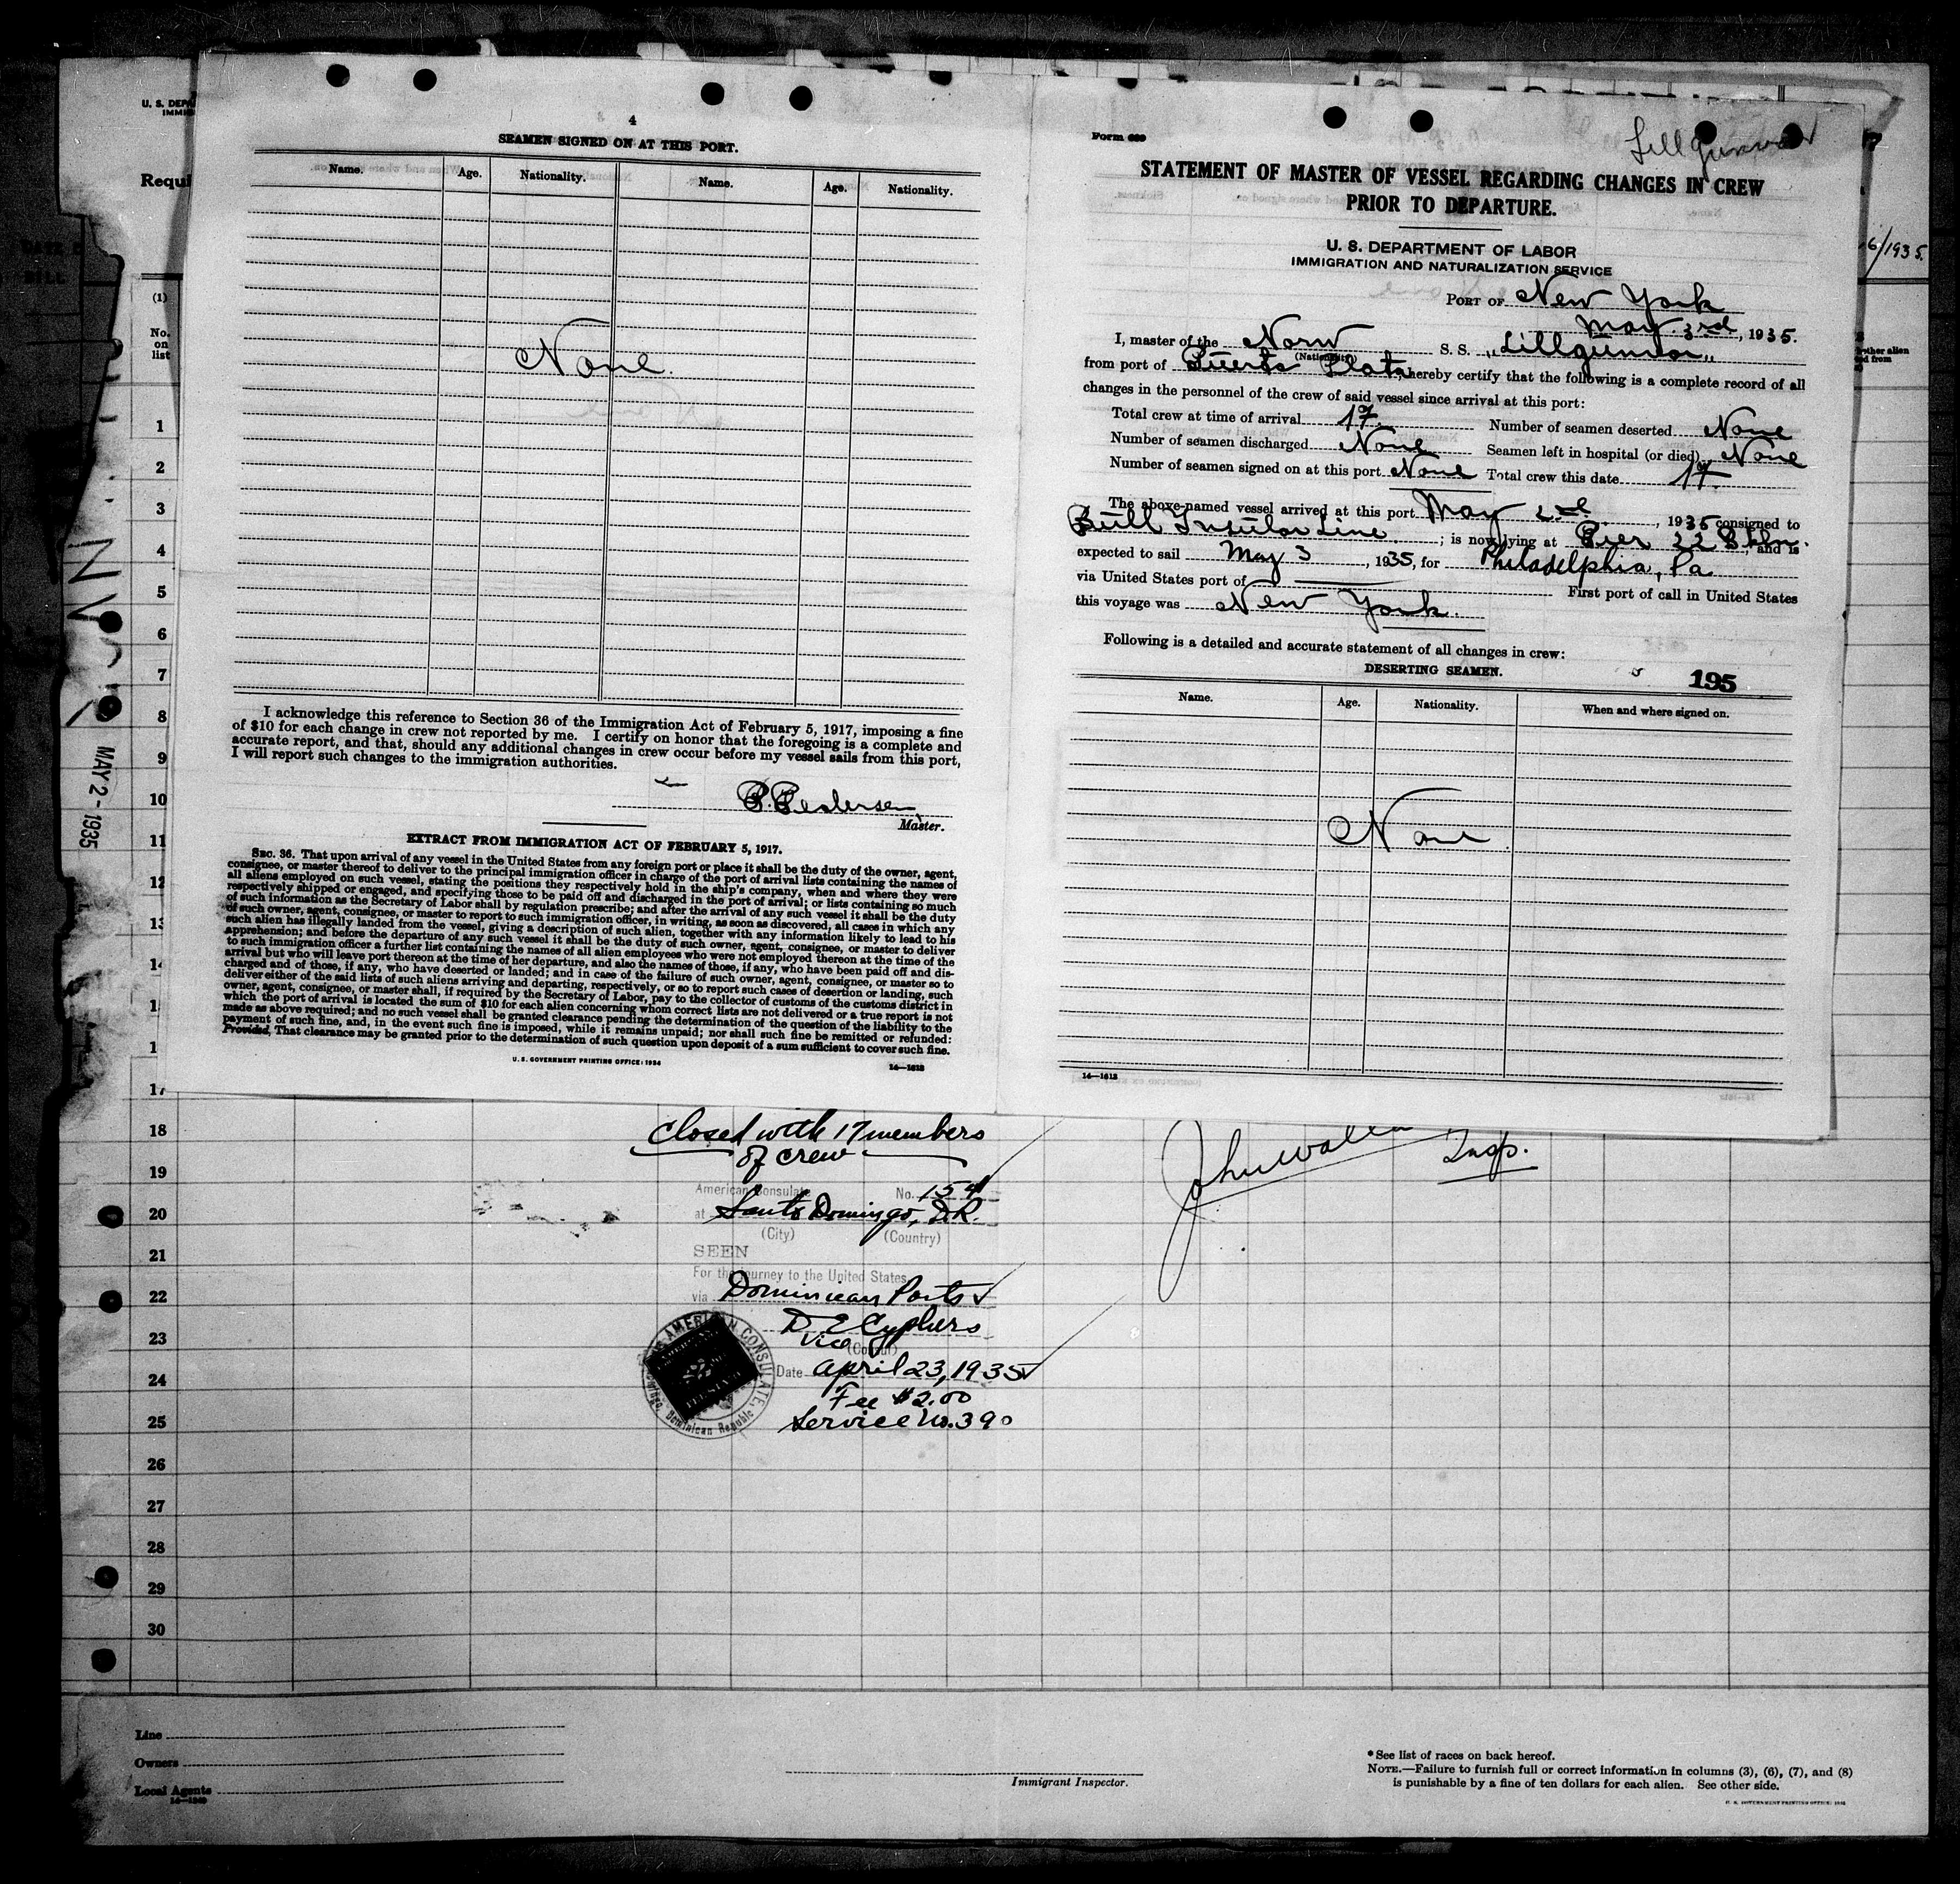 4
SEAMEN SIGNED ON AT THIS PORT.
Name. Age. Nationality. Name. Age. Nationality.
None.
I acknowledge this reference to Section 36 of the Immigration Act of February 5, 1917, imposing a fine
of $10 for each change in crew not reported by me. I certify on honor that the foregoing is a complete and
accurate report, and that, should any additional changes in crew occur before my vessel sails from this port,
I will report such changes to the immigration authorities.
P. Pedersen
Master.
EXTRACT FROM IMMIGRATION ACT OF FEBRUARY 5, 1917.
SEC. 36. That upon arrival of any vessel in the United States from any foreign port or place it shall be the duty of the owner, agent,
consignee, or master thereof to deliver to the principal immigration officer in charge of the port of arrival lists containing the names of
all aliens employed on such vessel, stating the positions they respectively hold in the ship's company, when and where they were
respectively shipped or engaged, and specifying those to be paid off and discharged in the port of arrival; or lists containing so much
of such information as the Secretary of Labor shall by regulation prescribe; and after the arrival of any such vessel it shall be the duty
of such owner, agent, consignee, or master to report to such immigration officer, in writing, as soon as discovered, all cases in which any
such alien has illegally landed from the vessel, giving a description of such alien, together with any information likely to lead to his
apprehension; and before the departure of any such vessel it shall be the duty of such owner, agent, consignee, or master to deliver
to such immigration officer a further list containing the names of all alien employees who were not employed thereon at the time of the
arrival but who will leave port thereon at the time of her departure, and also the names of those, if any, who have been paid off and dis-
charged and of those, if any, who have deserted or landed; and in case of the failure of such owner, agent, consignee, or master so to
deliver either of the said lists of such aliens arriving and departing, respectively, or so to report such cases of desertion or landing, such
owner, agent, consignee, or master shall, if required by the Secretary of Labor, pay to the collector of customs of the customs district in
which the port of arrival is located the sum of $10 for each alien concerning whom correct lists are not delivered or a true report is not
made as above required; and no such vessel shall be granted clearance pending the determination of the question of the liability to the
payment of such fine, and, in the event such fine is imposed, while it remains unpaid; nor shall such fine be remitted or refunded:
Provided, That clearance may be granted prior to the determination of such question upon deposit of a sum sufficient to cover such fine.
U. S. GOVERNMENT PRINTING OFFICE: 1934
14—1613
Form 689
Lillgunvor
STATEMENT OF MASTER OF VESSEL REGARDING CHANGES IN CREW
PRIOR TO DEPARTURE.
U. S. DEPARTMENT OF LABOR
IMMIGRATION AND NATURALIZATION SERVICE
PORT OF New York
May 3rd, 1935.
I, master of the Norw S. S. „Lillgunvor"
(Nationality)
from port of Puerto Plata, hereby certify that the following is a complete record of all
changes in the personnel of the crew of said vessel since arrival at this port:
Total crew at time of arrival 17. Number of seamen deserted None
Number of seamen discharged None Seamen left in hospital (or died) None
Number of seamen signed on at this port None Total crew this date 17.
The above-named vessel arrived at this port May 2nd, 1935 consigned to
Bull Insular Line; is now lying at Pier 22 Bkln. and is
expected to sail May 3, 1935, for Philadelphia, Pa
via United States port of First port of call in United States
this voyage was New York.
Following is a detailed and accurate statement of all changes in crew:
DESERTING SEAMEN.
195
Name. Age. Nationality. When and where signed on.
None
14—1613
U. S. DEP
IMMI
Requi
6/1935.
(1)
No.
on
list
other alien
1
2
3
4
5
6
7
8
9
10
11
12
13
MAY 2 - 1935
18
19
20
21
22
23
24
25
26
27
28
29
30
Closed with 17 members
of crew
John Insp.
American Consulate No. 154
at Santo Domingo, D.R.
(City) (Country)
SEEN
For the journey to the United States
via Dominican Ports
D E Cyphers
Vice (Consul)
Date April 23, 1935
Fee $2.00
Service No. 390
AMERICAN CONSULATE
Dominican Republic
Line
Owners
Local Agents
Immigrant Inspector.
* See list of races on back hereof.
NOTE.—Failure to furnish full or correct information in columns (3), (6), (7), and (8)
is punishable by a fine of ten dollars for each alien. See other side.